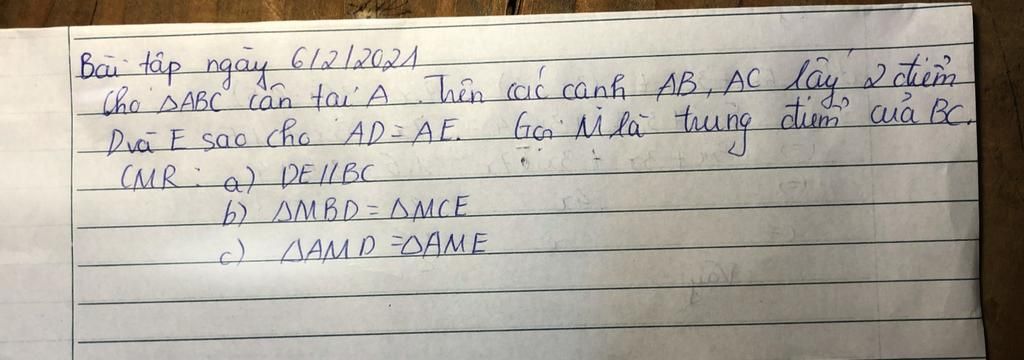 Bài tập ngày 6/2/2021
Cho ΔABC cân tại A. Trên các cạnh AB, AC lấy 2 điểm
D và E sao cho AD = AE. Gọi M là trung điểm của BC.
CMR: a) DE//BC
b) ΔMBD = ΔMCE
c) ΔAMD = ΔAME